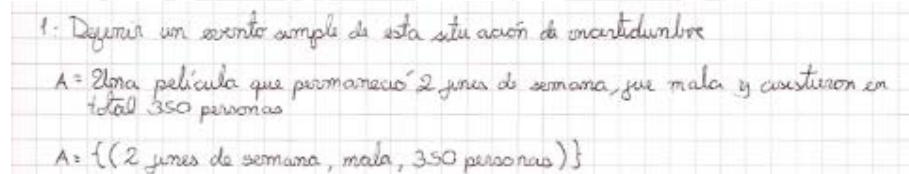 1: Definir un evento simple de esta situación de incertidunbre
A = Una película que permaneció 2 fines de semana, fue mala y asistieron en
total 350 personas
A = {(2 fines de semana, mala, 350 personas)}